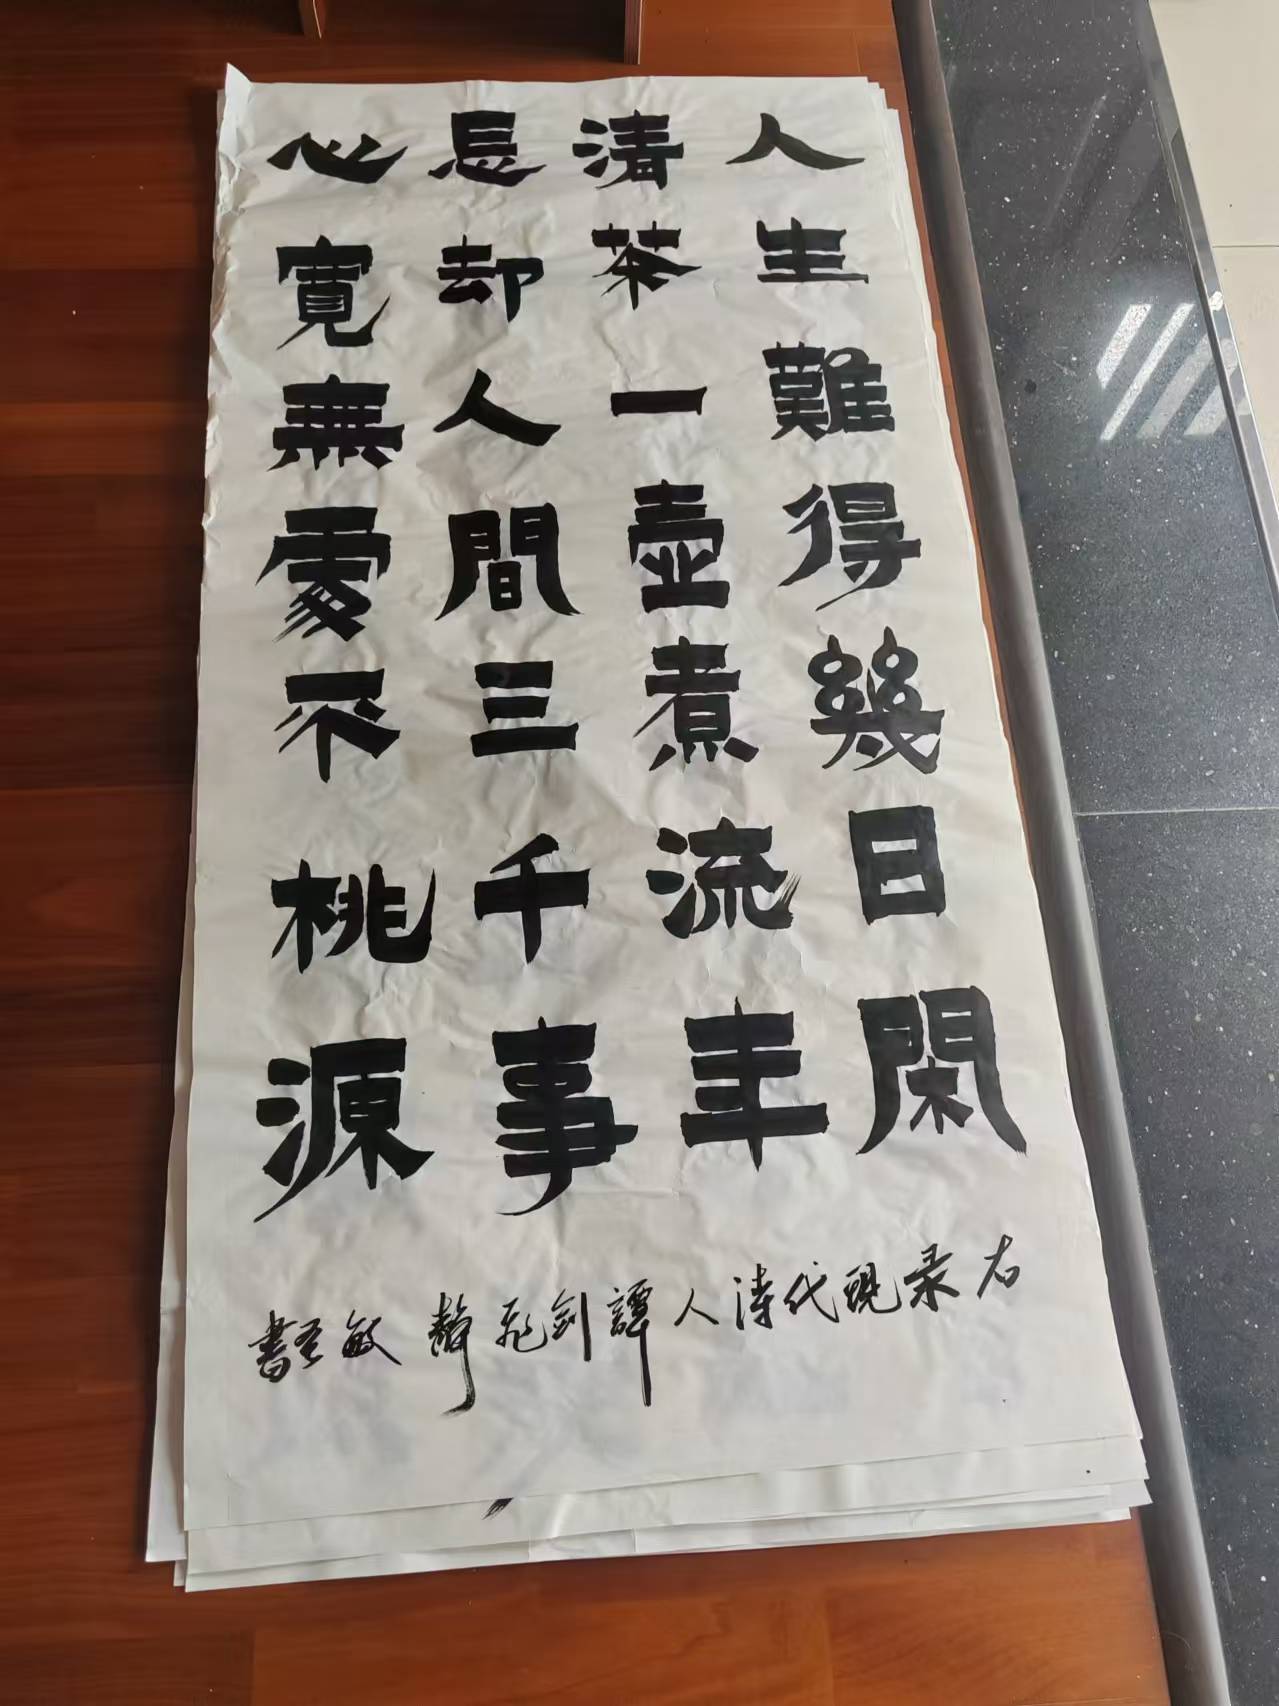 人生難得幾日閑
清茶一壺煮流年
忘却人間三千事
心寬無處不桃源
右录現代诗人譚剑飛 敏書